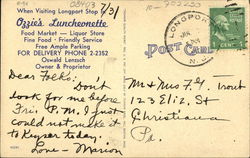 10-702250
08403
7/31
When Visiting Longport Stop
Ozzie's Luncheonette
Food Market — Liquor Store
Fine Food - Friendly Service
Free Ample Parking
FOR DELIVERY PHONE 2-2352
Oswald Lenzsch
Owner & Proprietor
POST CARD
LONGPORT
N.J.
Dear Folks: Don't
look for me before
Fri. P.M. I just
could not make it
to Keyser today.
Love - Marion
Mr & Mrs F. G. Trout
123 Eliz. St
Christiana
Pa.